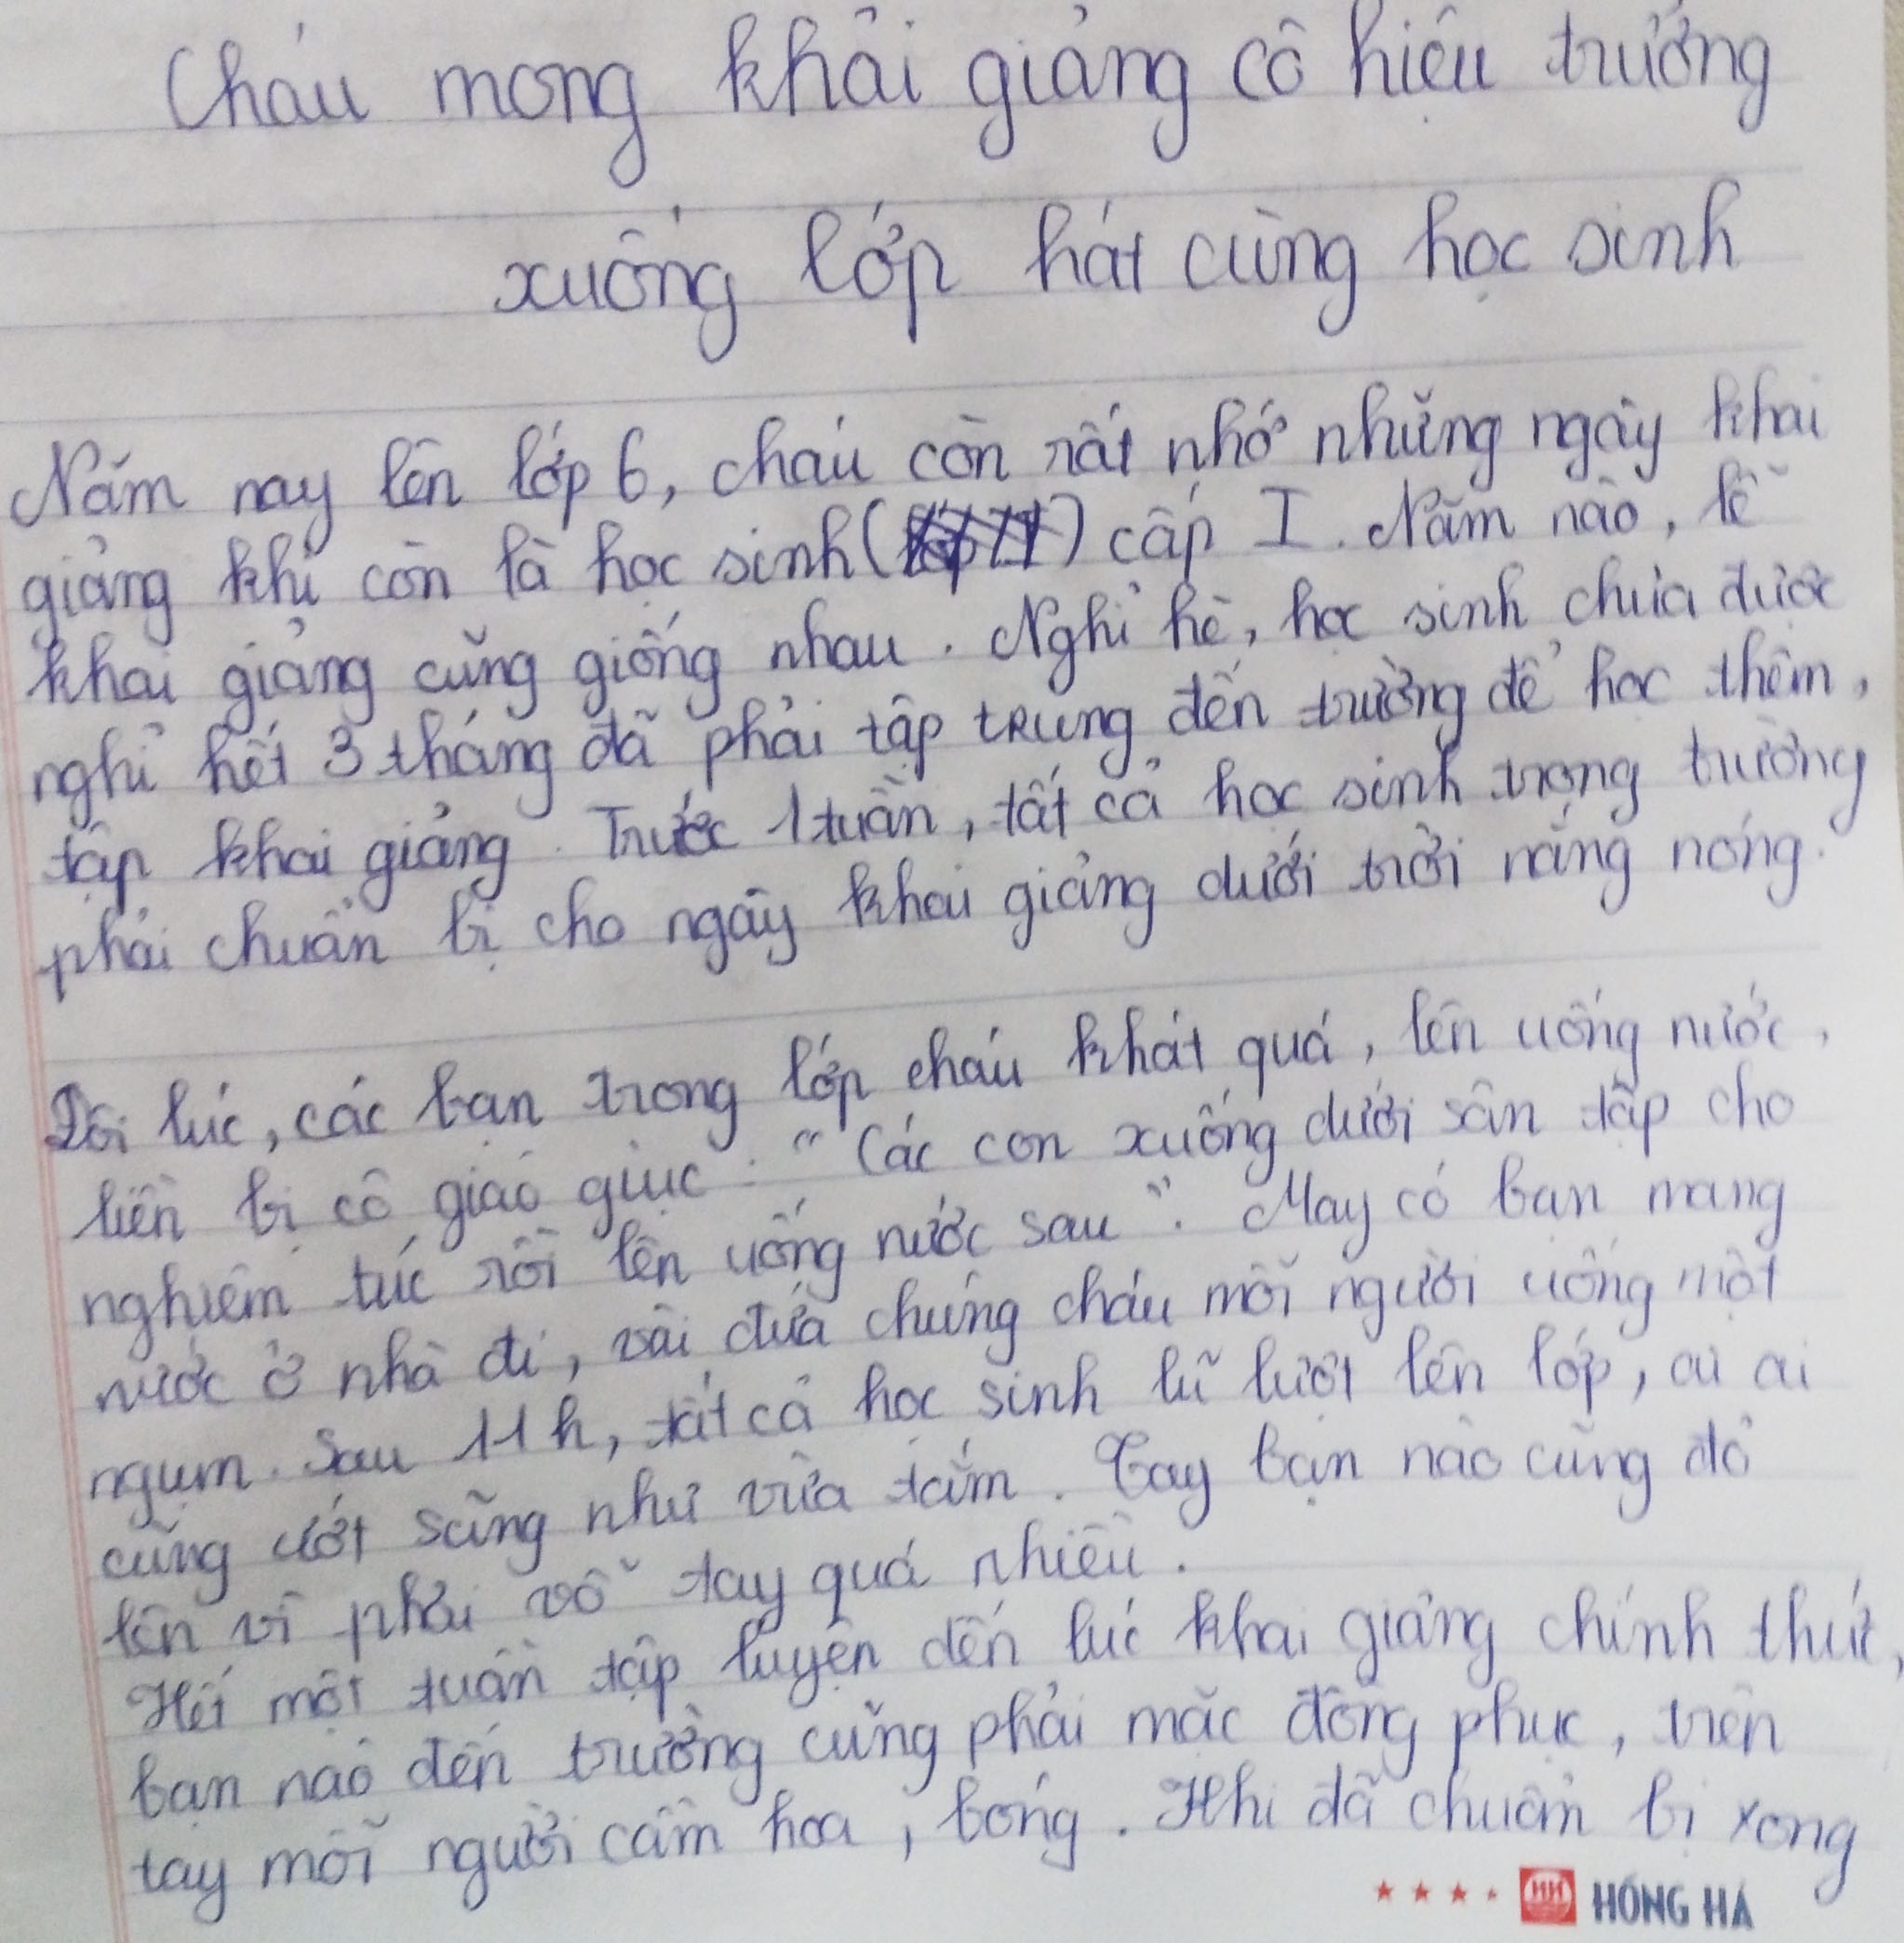 Cháu mong khai giảng cô hiệu trưởng
xuống lớp hát cùng học sinh
Năm nay lên lớp 6, cháu còn rất nhớ những ngày khai
giảng khi còn là học sinh ( ) cấp I. Năm nào, lễ
khai giảng cũng giống nhau. Nghỉ hè, học sinh chưa được
nghỉ hết 3 tháng đã phải tập trung đến trường để học thêm,
tập khai giảng. Trước 1 tuần, tất cả học sinh trong trường
phải chuẩn bị cho ngày khai giảng dưới trời nắng nóng.
Đôi lúc, các bạn trong lớp cháu khát quá, lên uống nước,
liền bị cô giáo giục: "Các con xuống dưới sân tập cho
nghiêm túc rồi lên uống nước sau". May có bạn mang
nước ở nhà đi, vài đứa chúng cháu mỗi người uống một
ngụm. Sau 11h, tất cả học sinh lũ lượt lên lớp, ai ai
cũng ướt sũng như vừa tắm. Tay bạn nào cũng đỏ
lên vì phải vỗ tay quá nhiều.
Hết một tuần tập luyện đến lúc khai giảng chính thức,
bạn nào đến trường cũng phải mặc đồng phục, trên
tay mỗi người cầm hoa, bóng. Khi đã chuẩn bị xong
HỒNG HÀ